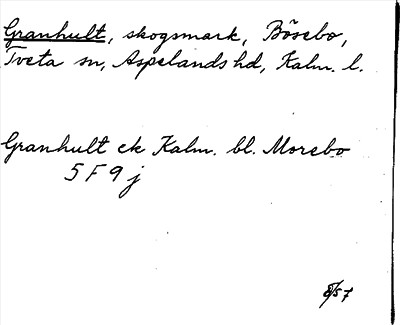 Granhult, skogsmark, Bösebo,
Tveta sn, Aspelands hd, Kalm. l.
Granhult ek Kalm. bl. Morebo
5 F 9 j
8/57